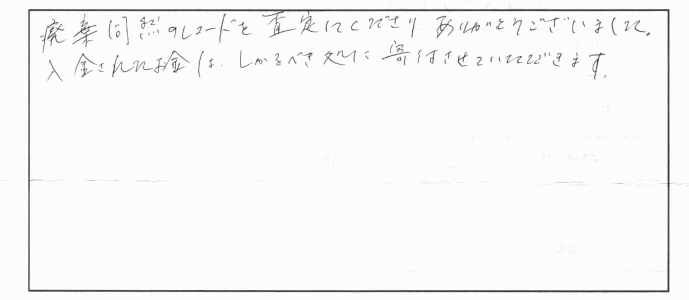 廃棄同然のレコードを査定してくださり ありがとうございました。
入金されたお金は、しかるべき所に寄付させていただきます。